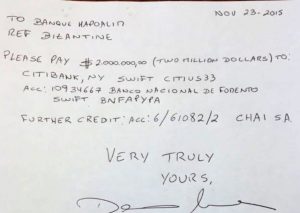 NOV 23-2015
TO BANQUE HAPOALIM
REF BIZANTINE
PLEASE PAY $2.000.000,00 (TWO MILLION DOLLARS) TO:
CITIBANK, NY SWIFT CITIUS33
ACC: 10934667 BANCO NACIONAL DE FOMENTO
SWIFT BNFAPYPA
FURTHER CREDIT: ACC: 6/61082/2 CHAI SA
VERY TRULY
YOURS,